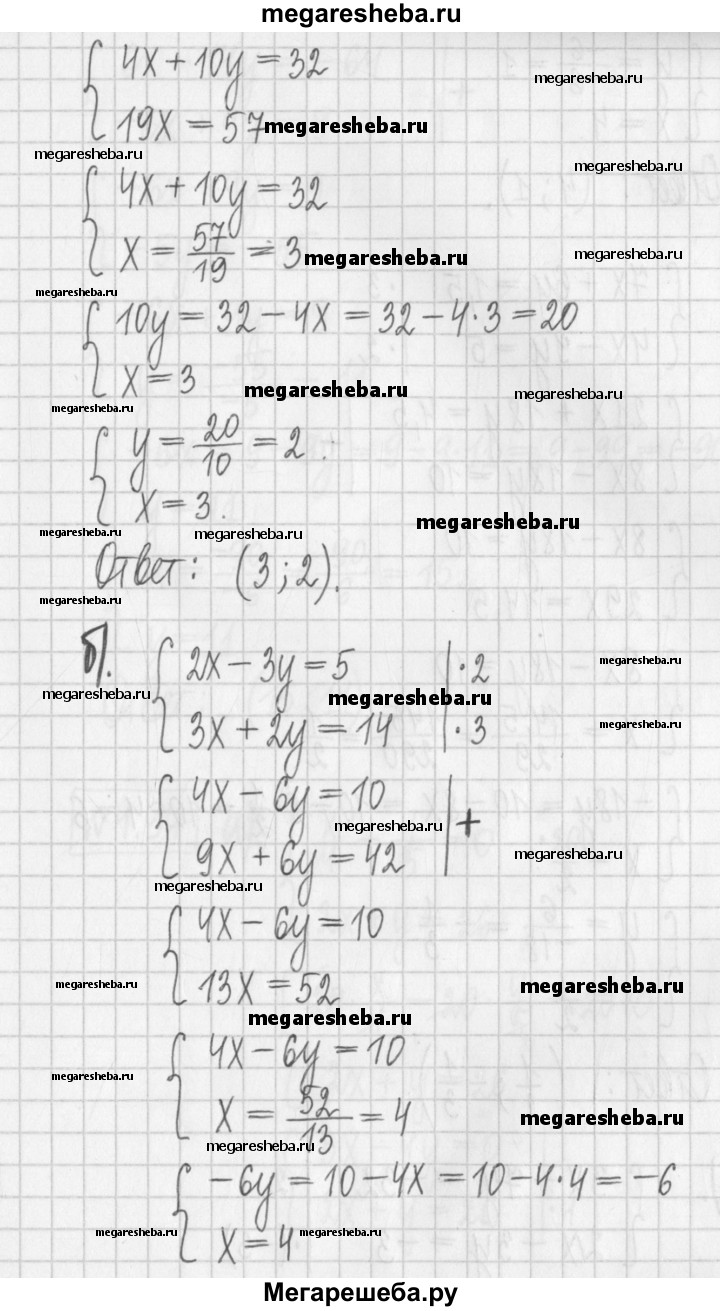 megaresheba.ru
4x + 10y = 32
19x = 57 megaresheba.ru
megaresheba.ru
megaresheba.ru
megaresheba.ru
4x + 10y = 32
x = 57/19 = 3 megaresheba.ru
megaresheba.ru
megaresheba.ru
10y = 32 - 4x = 32 - 4·3 = 20
x = 3 megaresheba.ru megaresheba.ru
megaresheba.ru
y = 20/10 = 2.
x = 3.
megaresheba.ru megaresheba.ru megaresheba.ru
Ответ: (3; 2).
megaresheba.ru
б). 2x - 3y = 5 | ·2
megaresheba.ru megaresheba.ru megaresheba.ru
3x + 2y = 14 | ·3
megaresheba.ru
4x - 6y = 10
megaresheba.ru +
9x + 6y = 42 megaresheba.ru
megaresheba.ru
4x - 6y = 10
13x = 52
megaresheba.ru megaresheba.ru
megaresheba.ru
4x - 6y = 10
megaresheba.ru
x = 52/13 = 4 megaresheba.ru
megaresheba.ru
-6y = 10 - 4x = 10 - 4·4 = -6
x = 4
megaresheba.ru megaresheba.ru
Мегарешеба.ру